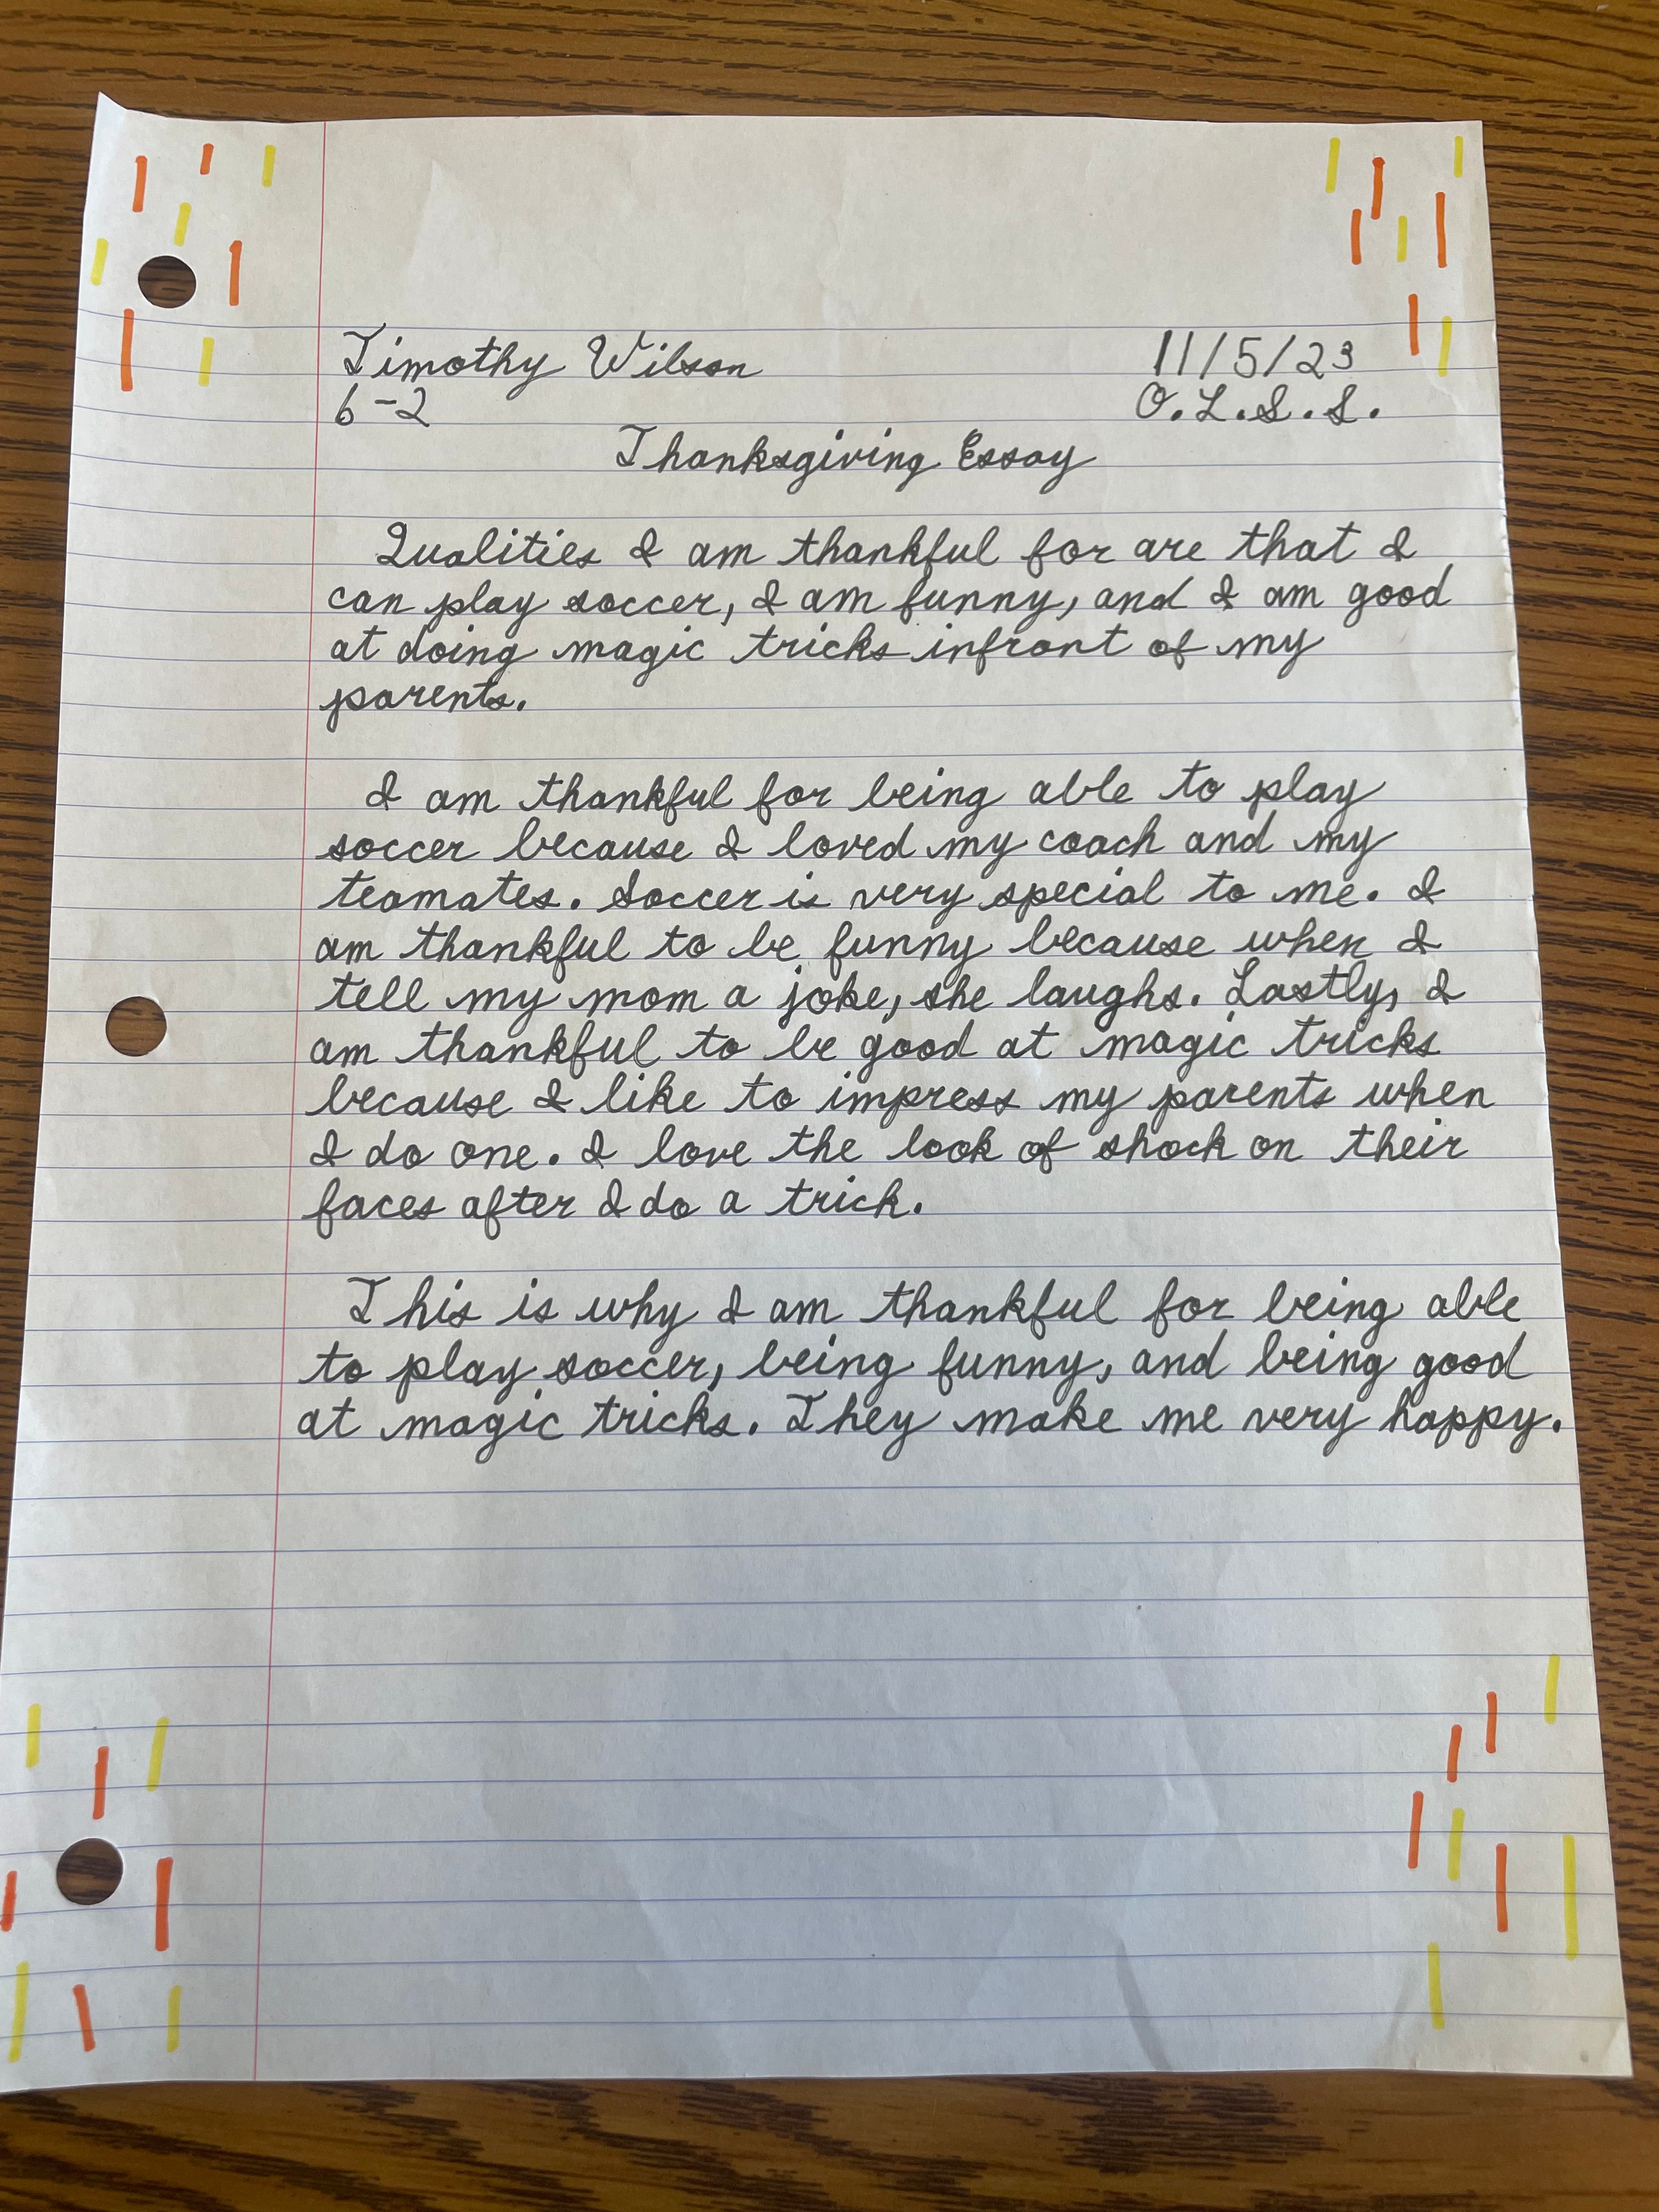 Timothy Wilson 11/5/23
6-2 O.L.S.S.
Thanksgiving Essay
Qualities I am thankful for are that I
can play soccer, I am funny, and I am good
at doing magic tricks infront of my
parents.
I am thankful for being able to play
soccer because I loved my coach and my
teamates. Soccer is very special to me. I
am thankful to be funny because when I
tell my mom a joke, she laughs. Lastly, I
am thankful to be good at magic tricks
because I like to impress my parents when
I do one. I love the look of shock on their
faces after I do a trick.
This is why I am thankful for being able
to play soccer, being funny, and being good
at magic tricks. They make me very happy.